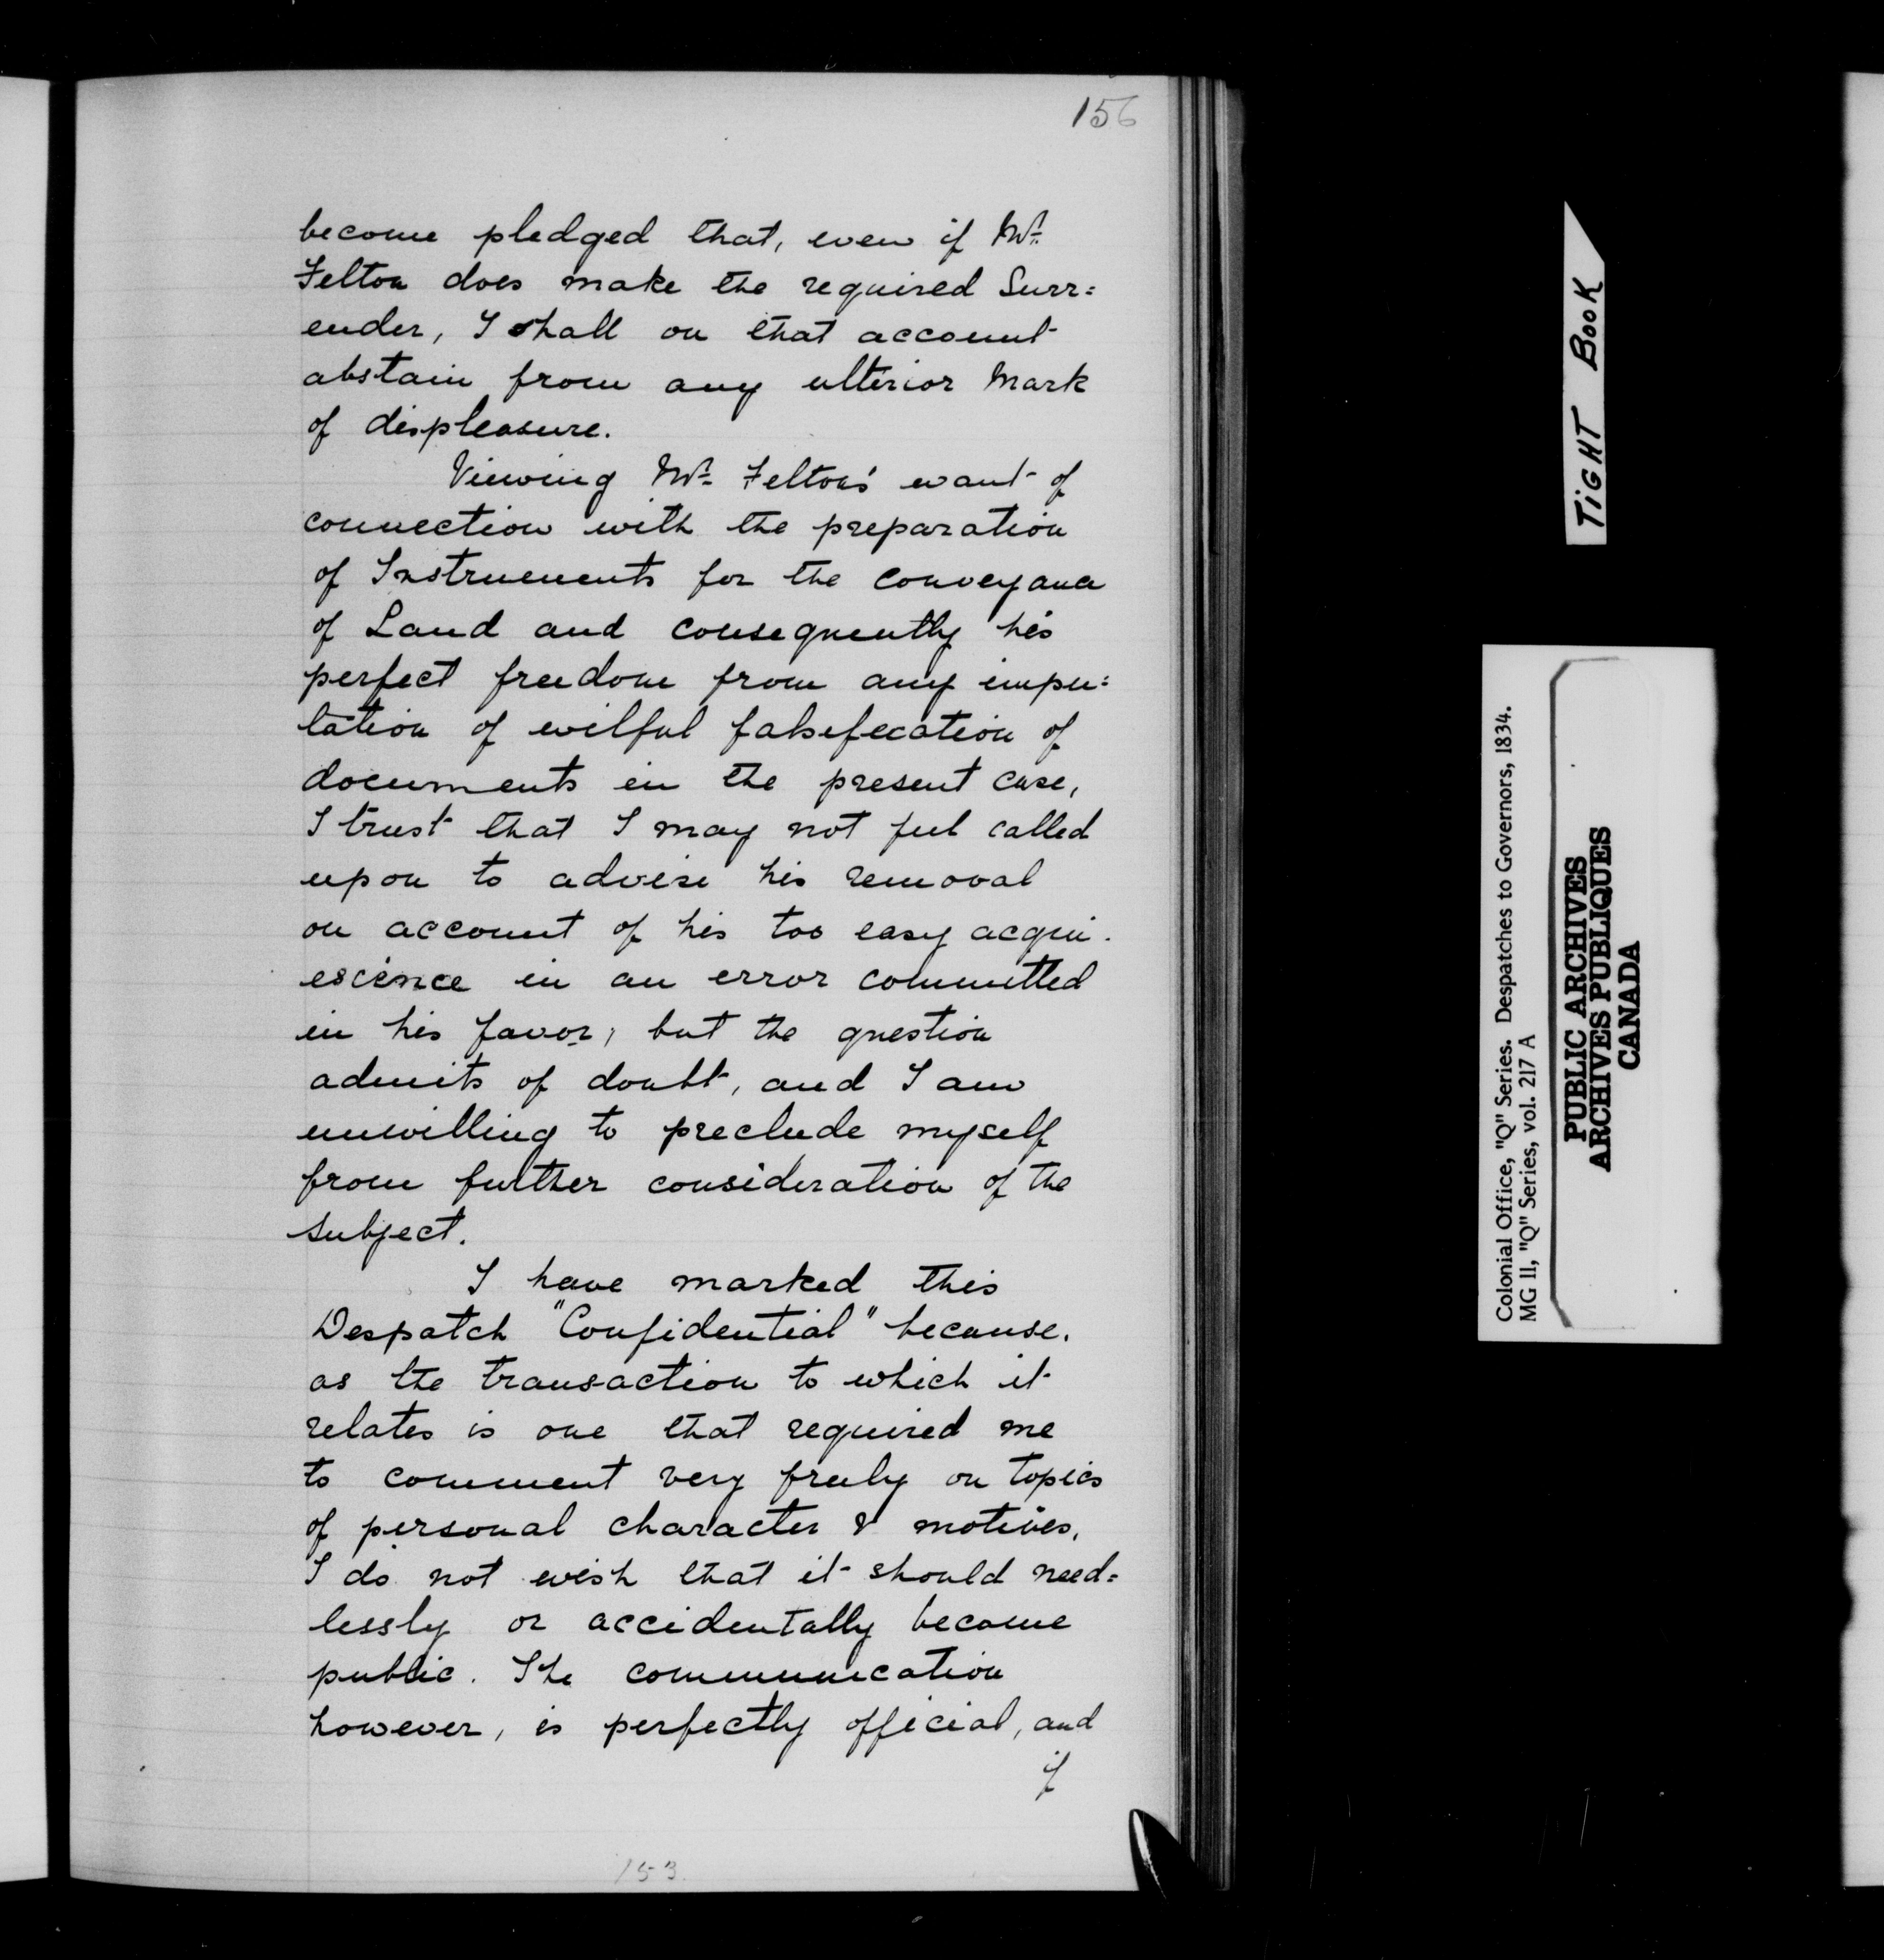 156
become pledged that, even if Mr.
Felton does make the required Surr=
ender, I shall on that account
abstain from any ulterior Mark
of displeasure.
Viewing Mr. Felton's want of
connection with the preparation
of Instruments for the Conveyance
of Land and consequently his
perfect freedom from any impu=
tation of wilful falsification of
documents in the present case,
I trust that I may not feel called
upon to advise his removal
on account of his too easy acqui-
escence in an error committed
in his favor; but the question
admits of doubt, and I am
unwilling to preclude myself
from further consideration of the
subject.
I have marked this
Despatch "Confidential" because,
as the transaction to which it
relates is one that required me
to comment very freely on topics
of personal character & motives,
I do not wish that it should need=
lessly or accidentally become
public. The communication
however, is perfectly official, and
if
153
TIGHT BOOK
Colonial Office, "Q" Series. Despatches to Governors, 1834.
MG 11, "Q" Series, vol. 217 A
PUBLIC ARCHIVES
ARCHIVES PUBLIQUES
CANADA